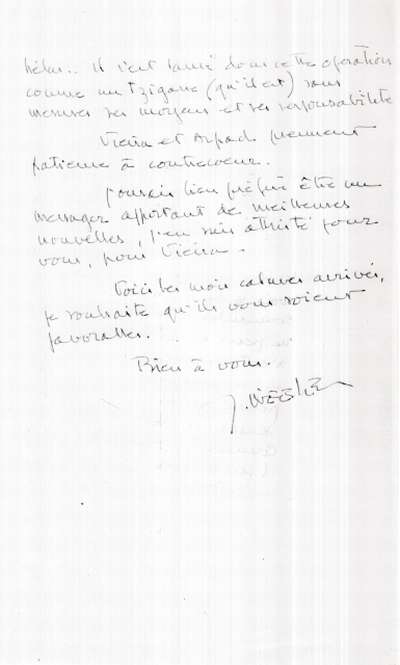 hélas.. Il s'est lancé dans cette opération
comme un Tzigane (qu'il est) sans
mesurer ses moyens et ses responsabilités
Vieira et Arpad prennent
patience à contrecoeur.
J'aurais bien préféré être un
messager apportant de meilleures
nouvelles, j'en suis attristé pour
vous, pour Vieira.
Voici les mois calmes arrivés,
je souhaite qu'ils vous soient
favorables.
Bien à vous.